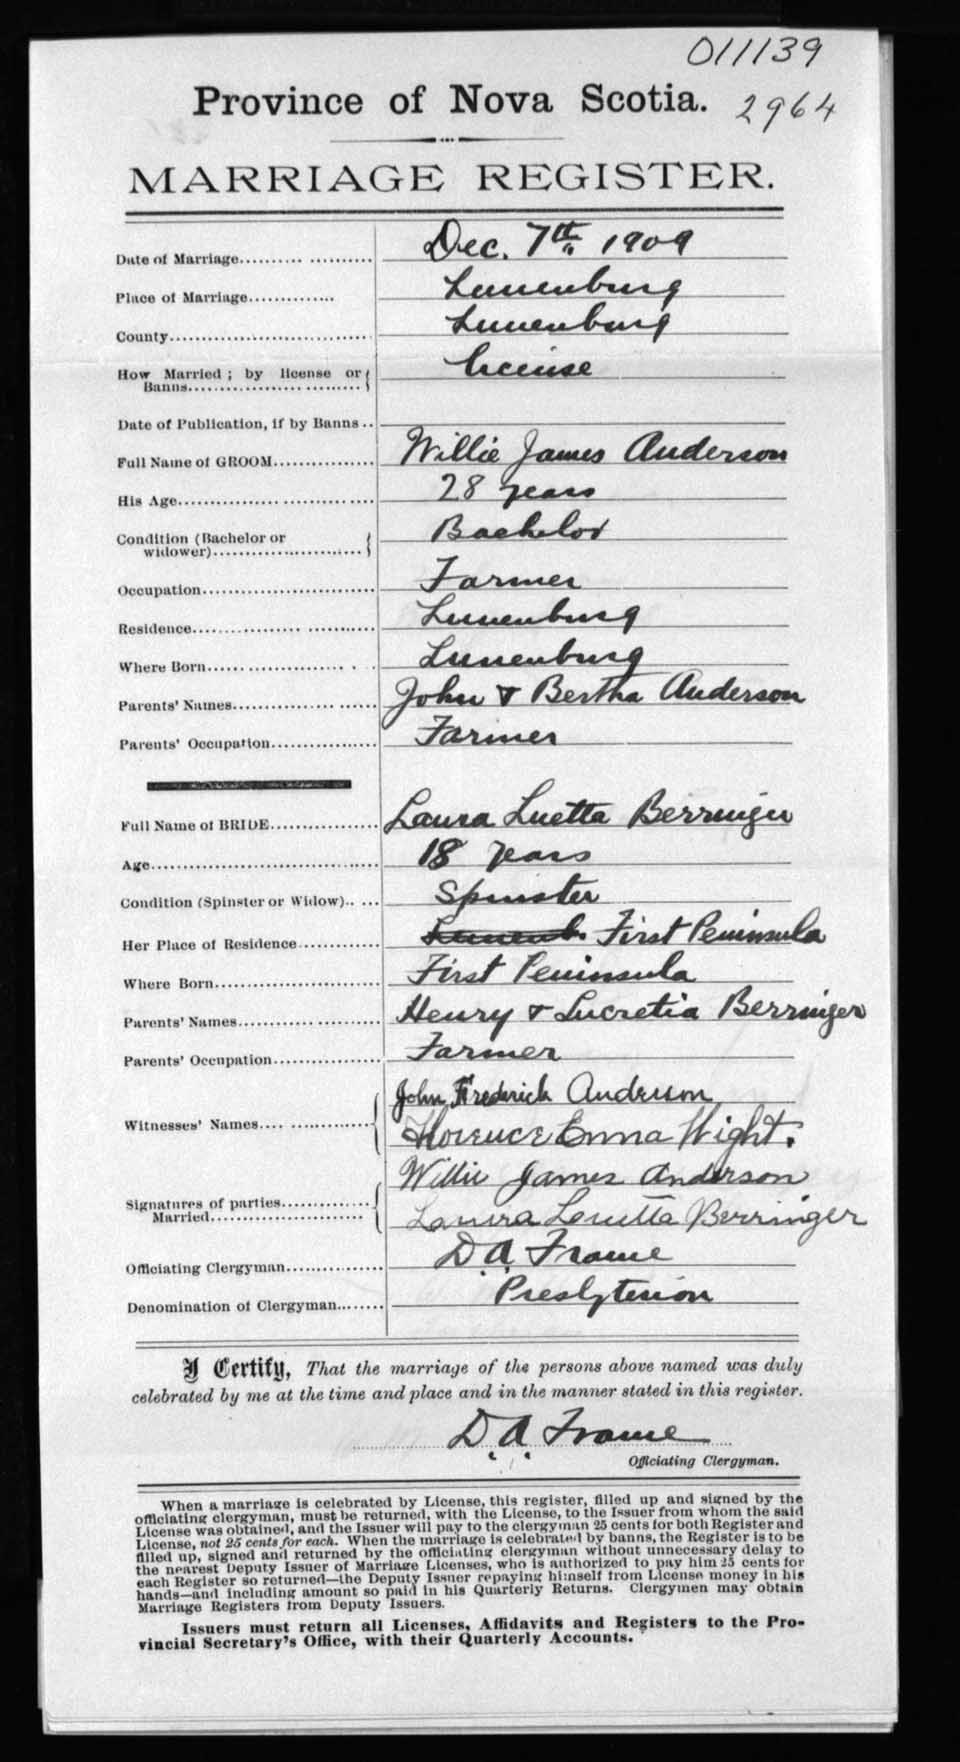 011139
Province of Nova Scotia. 2964
MARRIAGE REGISTER.
Date of Marriage.................... Dec. 7th, 1909
Place of Marriage.............. Lunenburg
County................................. Lunenburg
How Married ; by license or License
Banns.................................
Date of Publication, if by Banns ..
Full Name of GROOM................ Willie James Anderson
His Age................................ 28 years
Condition (Bachelor or Bachelor
widower)..........................
Occupation............................. Farmer
Residence............................. Lunenburg
Where Born........................ Lunenburg
Parents' Names....................... John & Bertha Anderson
Parents' Occupation................. Farmer
Full Name of BRIDE................. Laura Luetta Berringer
Age..................................... 18 years
Condition (Spinster or Widow).. ... Spinster
Her Place of Residence............. Lunenb. First Peninsula
Where Born............................ First Peninsula
Parents' Names....................... Henry & Lucretia Berringer
Parents' Occupation................. Farmer
John Frederick Anderson
Witnesses' Names.... ..............
Florence Enna Wight.
Willie James Anderson
Signatures of parties..............
Married.........................
Laura Luetta Berringer
Officiating Clergyman............... D. A. Frame
Denomination of Clergyman........ Presbyterian
I Certify, That the marriage of the persons above named was duly
celebrated by me at the time and place and in the manner stated in this register.
D. A. Frame
Officiating Clergyman.
When a marriage is celebrated by License, this register, filled up and signed by the
officiating clergyman, must be returned, with the License, to the Issuer from whom the said
License was obtained, and the Issuer will pay to the clergyman 25 cents for both Register and
License, not 25 cents for each. When the marriage is celebrated by banns, the Register is to be
filled up, signed and returned by the officiating clergyman without unnecessary delay to
the nearest Deputy Issuer of Marriage Licenses, who is authorized to pay him 25 cents for
each Register so returned—the Deputy Issuer repaying himself from License money in his
hands—and including amount so paid in his Quarterly Returns. Clergymen may obtain
Marriage Registers from Deputy Issuers.
Issuers must return all Licenses, Affidavits and Registers to the Pro-
vincial Secretary's Office, with their Quarterly Accounts.